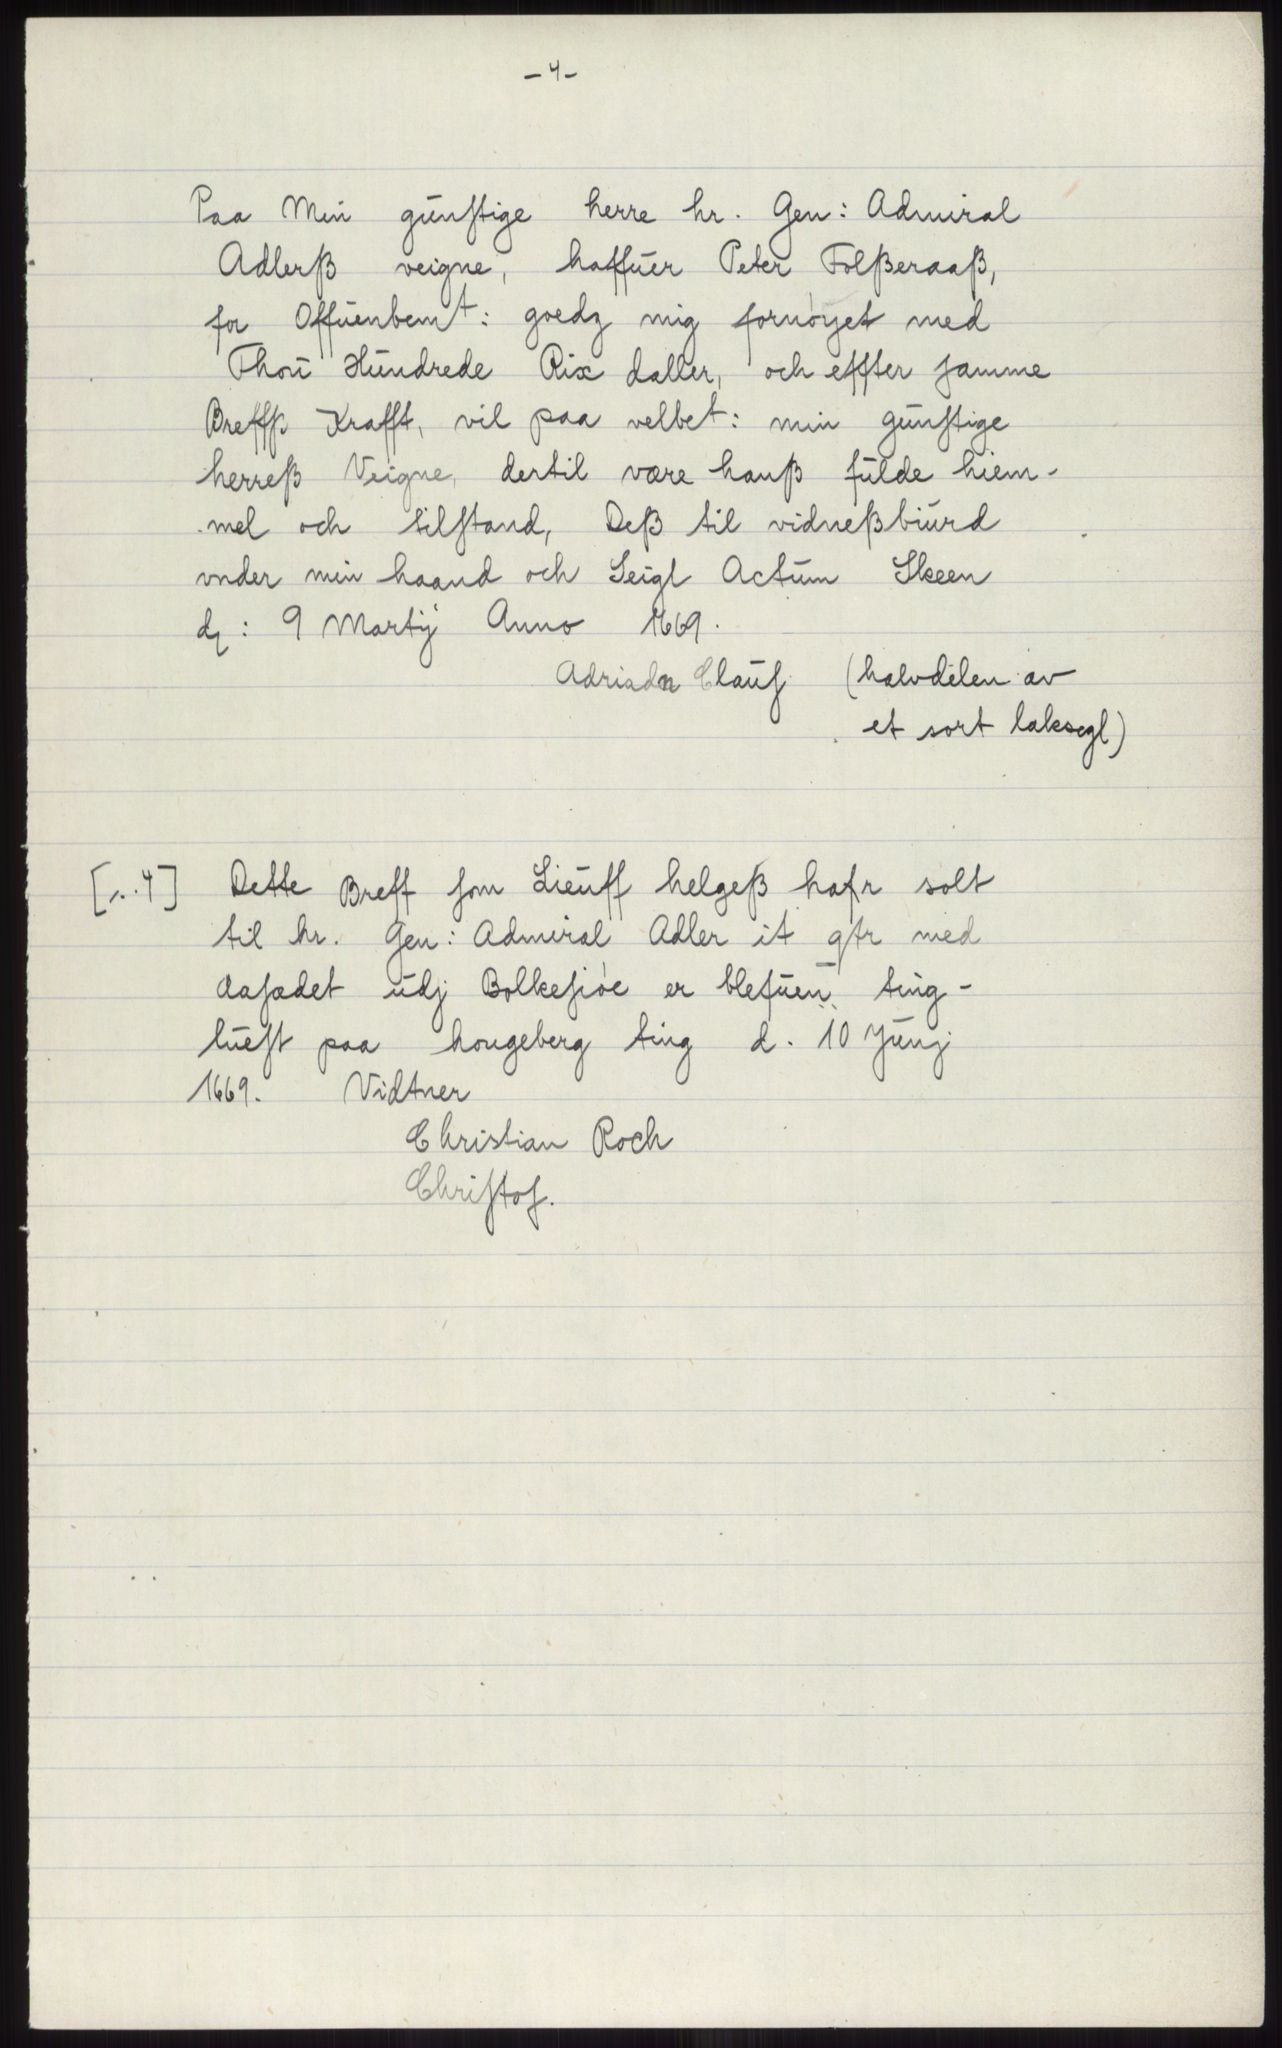 -4-
Paa Min günſtige herre hr. Gen: Admiral
Adlerß veigne, haffüer Peter Folßeraaß,
for Offüenbemt: goedz mig fornøyet med
Thoü Hündrede Rix daller, och effter ſamme
Breffß Krafft, vil paa velbet: min günſtige
herreß Veigne, dertil være hanß fülde hiem-
mel och tilſtand, Deß til vidneßbiürd
vnder min haand och Seigl Actüm Skeen
dȩ: 9 Martÿ Anno 1669.
Adriadn Claüſ (halvdelen av
et sort laksegl)
[s. 4] Dette Breff ſom Lieüff helgeß hafr solt
til hr. Gen: Admiral Adler it qtr med
aaſædet üdj Bolkeſiøe er blefüen ting-
lüeſt paa hougeberg ting d. 10 Jünj
1669. Vidtner
Christian Roch
Chriſtof.